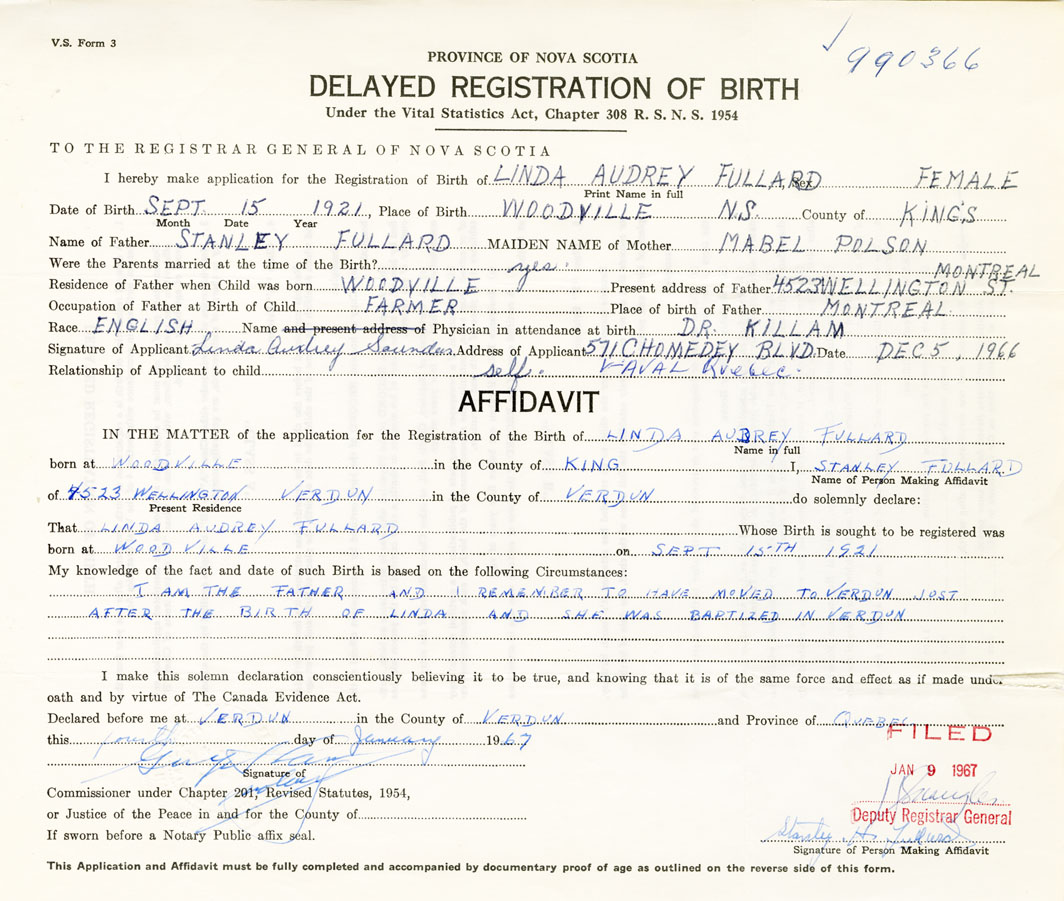 V.S. Form 3
990366
PROVINCE OF NOVA SCOTIA
DELAYED REGISTRATION OF BIRTH
Under the Vital Statistics Act, Chapter 308 R. S. N. S. 1954
TO THE REGISTRAR GENERAL OF NOVA SCOTIA
I hereby make application for the Registration of Birth of LINDA AUDREY FULLARD Sex FEMALE
Print Name in full
Date of Birth SEPT. 15 1921, Place of Birth WOODVILLE N.S. County of KING'S
Month Date Year
Name of Father STANLEY FULLARD MAIDEN NAME of Mother MABEL POLSON
Were the Parents married at the time of the Birth? yes.
MONTREAL
Residence of Father when Child was born WOODVILLE Present address of Father 4523 WELLINGTON ST.
Occupation of Father at Birth of Child FARMER Place of birth of Father MONTREAL
Race ENGLISH Name and present address of Physician in attendance at birth DR. KILLAM
Signature of Applicant Linda Audrey Saunders Address of Applicant 571 CHOMEDEY BLVD. Date DEC 5, 1966
Relationship of Applicant to child self. LAVAL Quebec.
AFFIDAVIT
IN THE MATTER of the application for the Registration of the Birth of LINDA AUDREY FULLARD
Name in full
born at WOODVILLE in the County of KING I, STANLEY FULLARD
Name of Person Making Affidavit
of 4523 WELLINGTON VERDUN in the County of VERDUN do solemnly declare:
Present Residence
That LINDA AUDREY FULLARD Whose Birth is sought to be registered was
born at WOODVILLE on SEPT 15TH 1921
My knowledge of the fact and date of such Birth is based on the following Circumstances:
I AM THE FATHER AND I REMEMBER TO HAVE MOVED TO VERDUN JUST
AFTER THE BIRTH OF LINDA AND SHE WAS BAPTIZED IN VERDUN
I make this solemn declaration conscientiously believing it to be true, and knowing that it is of the same force and effect as if made under
oath and by virtue of The Canada Evidence Act.
Declared before me at VERDUN in the County of VERDUN and Province of QUEBEC
FILED
this fourth day of January 1967
JAN 9 1967
Signature of
Commissioner under Chapter 201, Revised Statutes, 1954,
or Justice of the Peace in and for the County of
Deputy Registrar General
If sworn before a Notary Public affix seal.
Stanley H. Fullard
Signature of Person Making Affidavit
This Application and Affidavit must be fully completed and accompanied by documentary proof of age as outlined on the reverse side of this form.